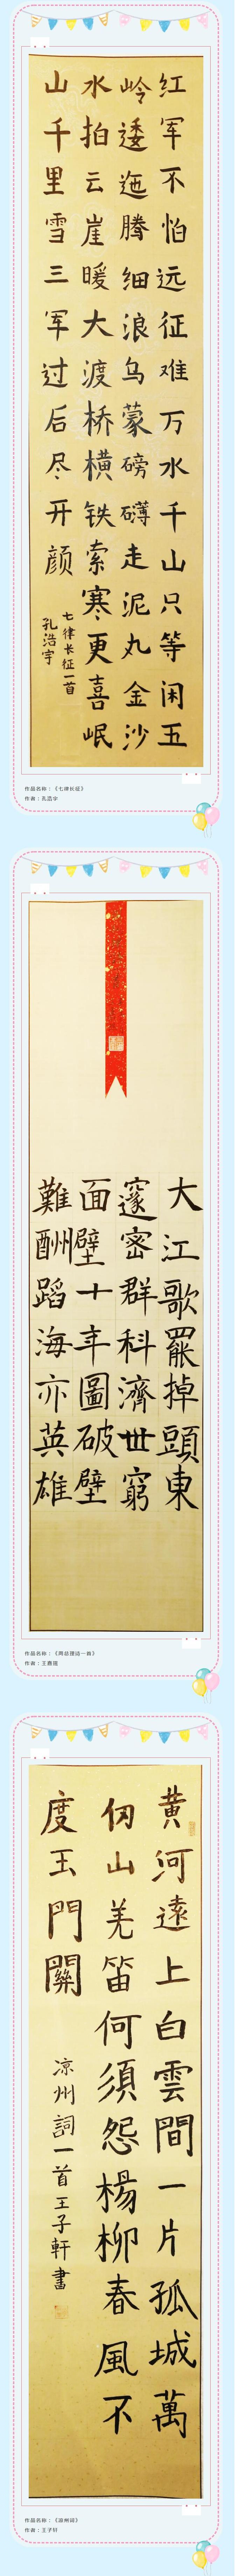 红军不怕远征难万水千山只等闲五
岭逶迤腾细浪乌蒙磅礴走泥丸金沙
水拍云崖暖大渡桥横铁索寒更喜岷
山千里雪三军过后尽开颜
七律长征一首
孔浩宇
作品名称：《七律长征》
作者：孔浩宇
大江歌罷掉頭東
邃密群科濟世窮
面壁十年圖破壁
難酬蹈海亦英雄
作品名称：《周总理诗一首》
作者：王
黄河遠上白雲間一片孤城萬
仞山羌笛何須怨楊柳春風不
度玉門關
凉州詞一首王子軒書
作品名称：《凉州词》
作者：王子轩